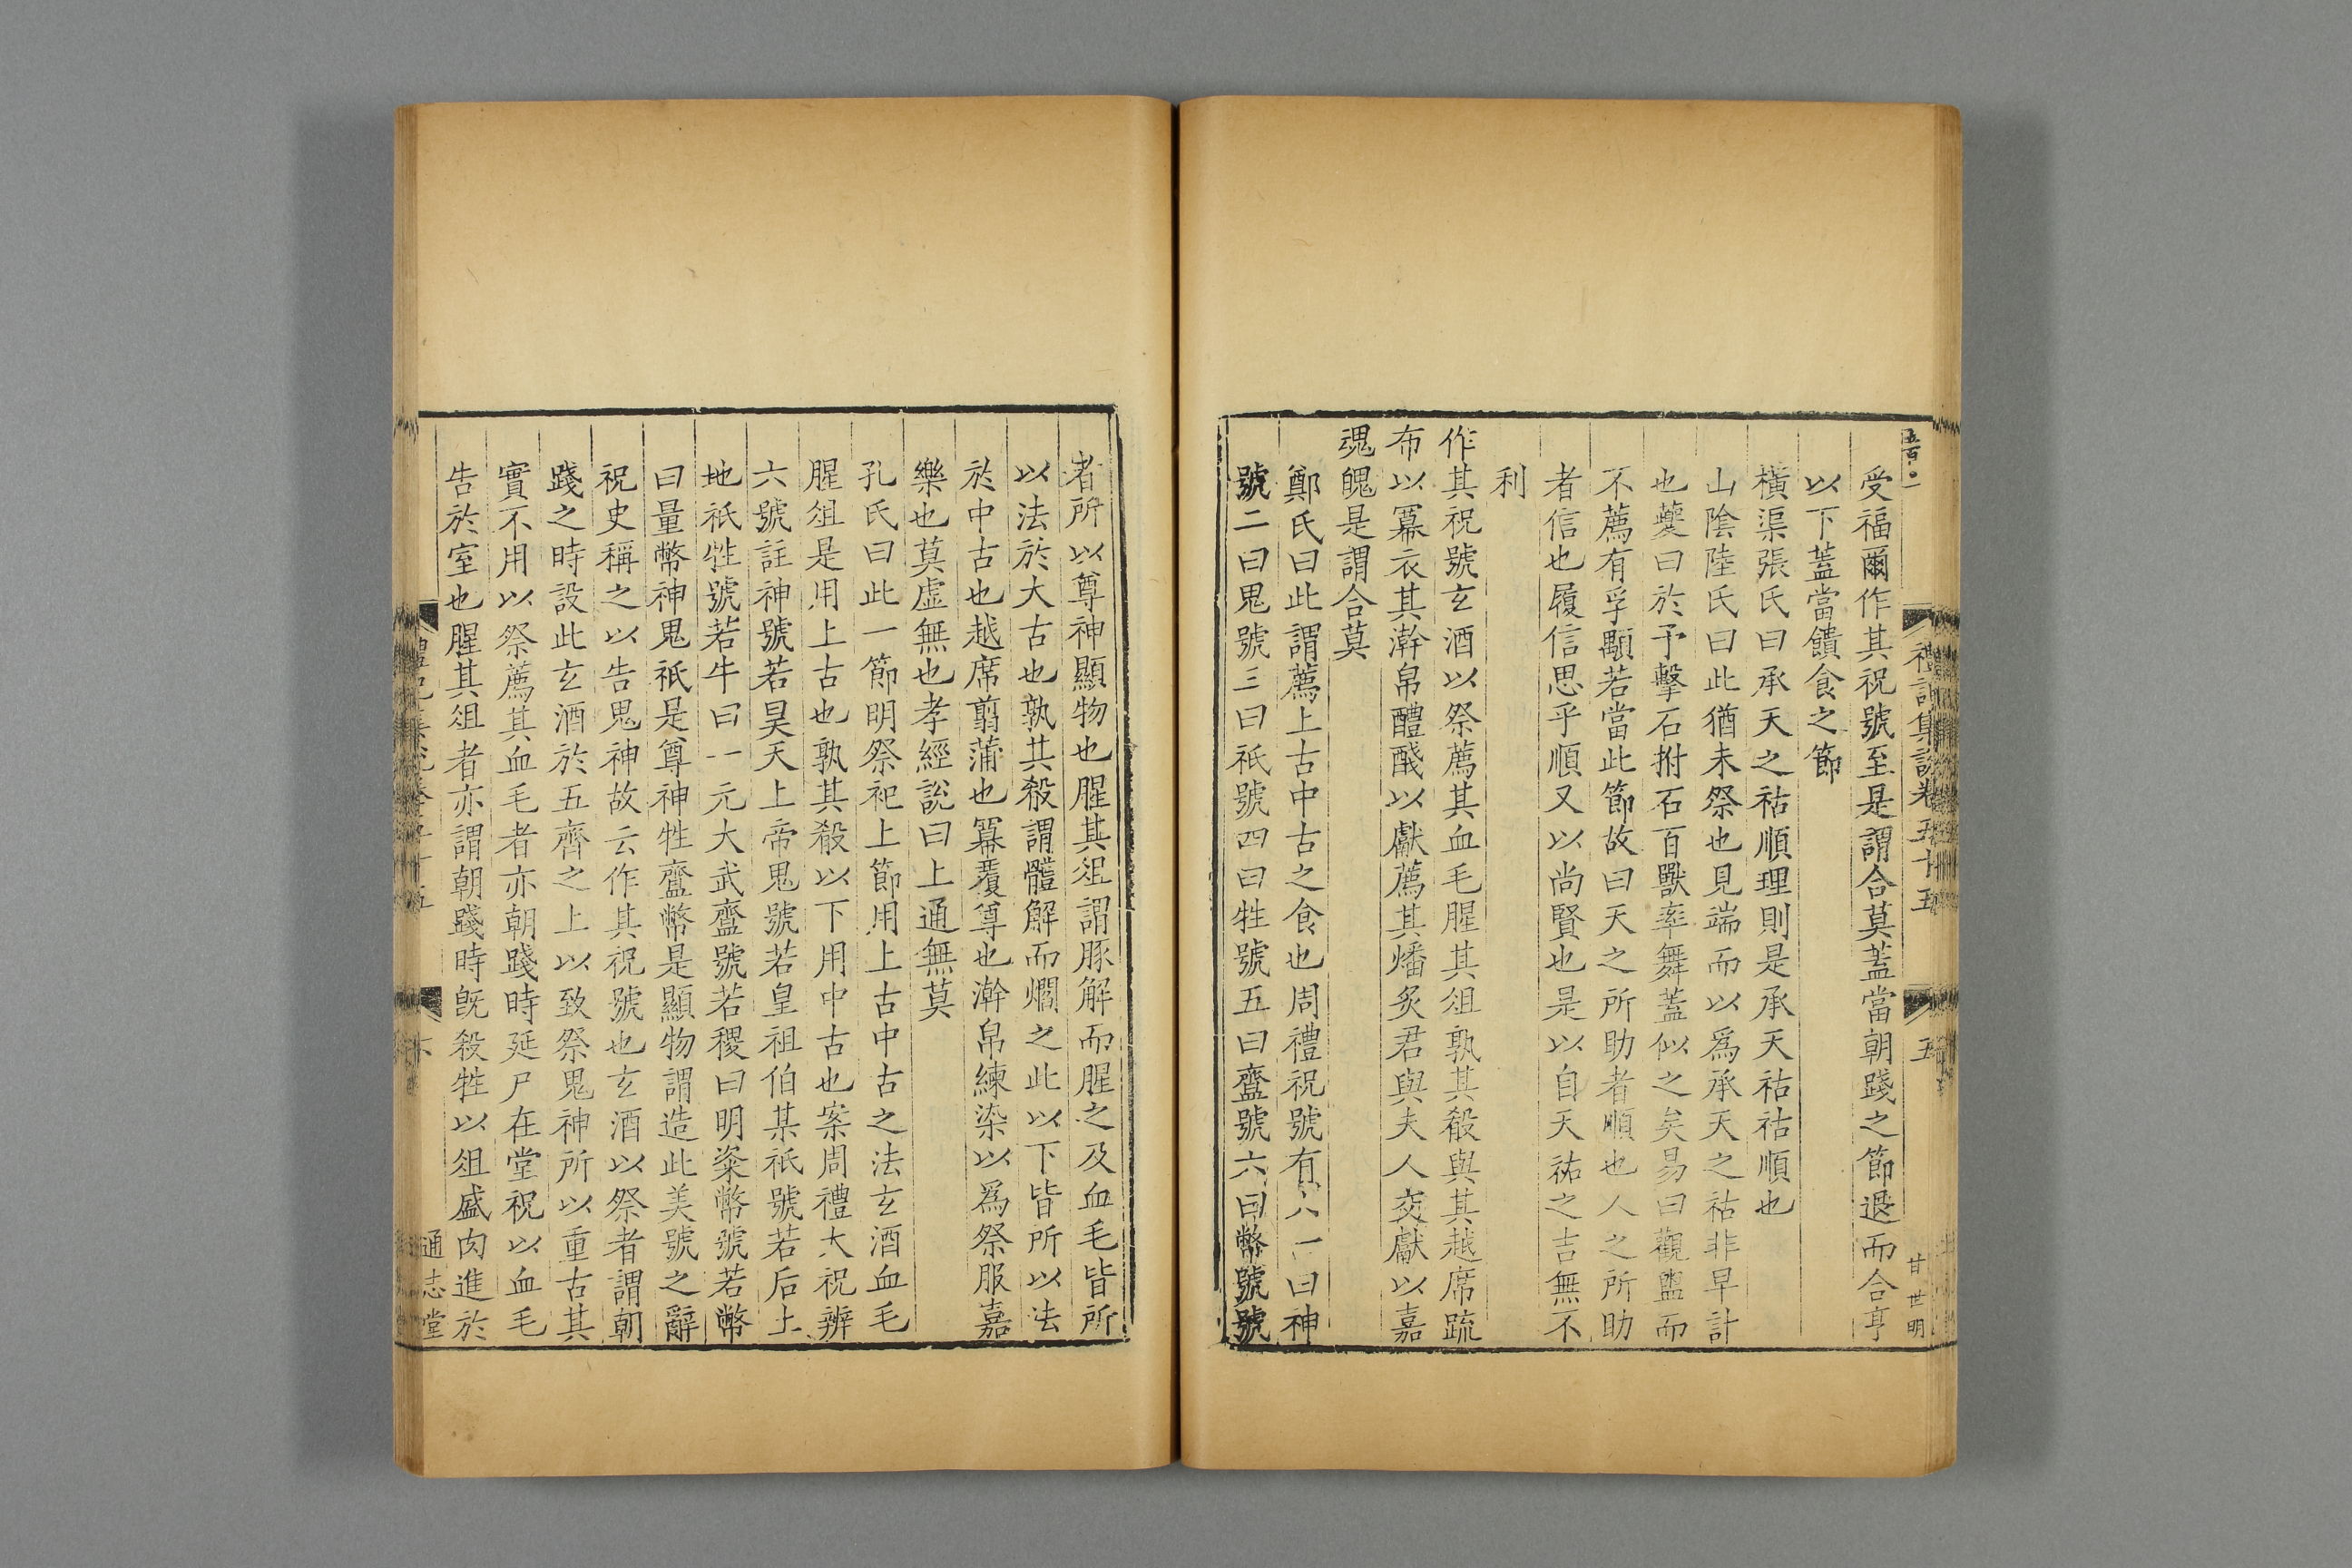 禮記集說卷五十五
五
甘世明
受福爾作其祝號至是謂合莫蓋當朝踐之節退而合亨
以下蓋當饋食之節
橫渠張氏曰承天之祜順理則是承天祜祜順也
山陰陸氏曰此猶未祭也見端而以爲承天之祜非早計
也夔曰於予擊石拊石百獸率舞蓋似之矣易曰觀盥而
不薦有孚顒若當此節故曰天之所助者順也人之所助
者信也履信思乎順又以尚賢也是以自天祐之吉無不
利
作其祝號玄酒以祭薦其血毛腥其俎孰其殽與其越席疏
布以冪衣其澣帛醴醆以獻薦其燔炙君與夫人交獻以嘉
魂魄是謂合莫
鄭氏曰此謂薦上古中古之食也周禮祝號有六一曰神
號二曰鬼號三曰祇號四曰牲號五曰齍號六曰幣號號
者所以尊神顯物也腥其俎謂豚解而腥之及血毛皆所
以法於大古也孰其殽謂體解而爓之此以下皆所以法
於中古也越席翦蒲也冪覆尊也澣帛練染以爲祭服嘉
樂也莫虛無也孝經說曰上通無莫
孔氏曰此一節明祭祀上節用上古中古之法玄酒血毛
腥俎是用上古也孰其殽以下用中古也案周禮大祝辨
六號註神號若昊天上帝鬼號若皇祖伯某祇號若后土
地祇牲號若牛曰一元大武齍號若稷曰明粢幣號若幣
曰量幣神鬼祇是尊神牲齍幣是顯物謂造此美號之辭
祝史稱之以告鬼神故云作其祝號也玄酒以祭者謂朝
踐之時設此玄酒於五齊之上以致祭鬼神所以重古其
實不用以祭薦其血毛者亦朝踐時延尸在堂祝以血毛
告於室也腥其俎者亦謂朝踐時旣殺牲以俎盛肉進於
通志堂